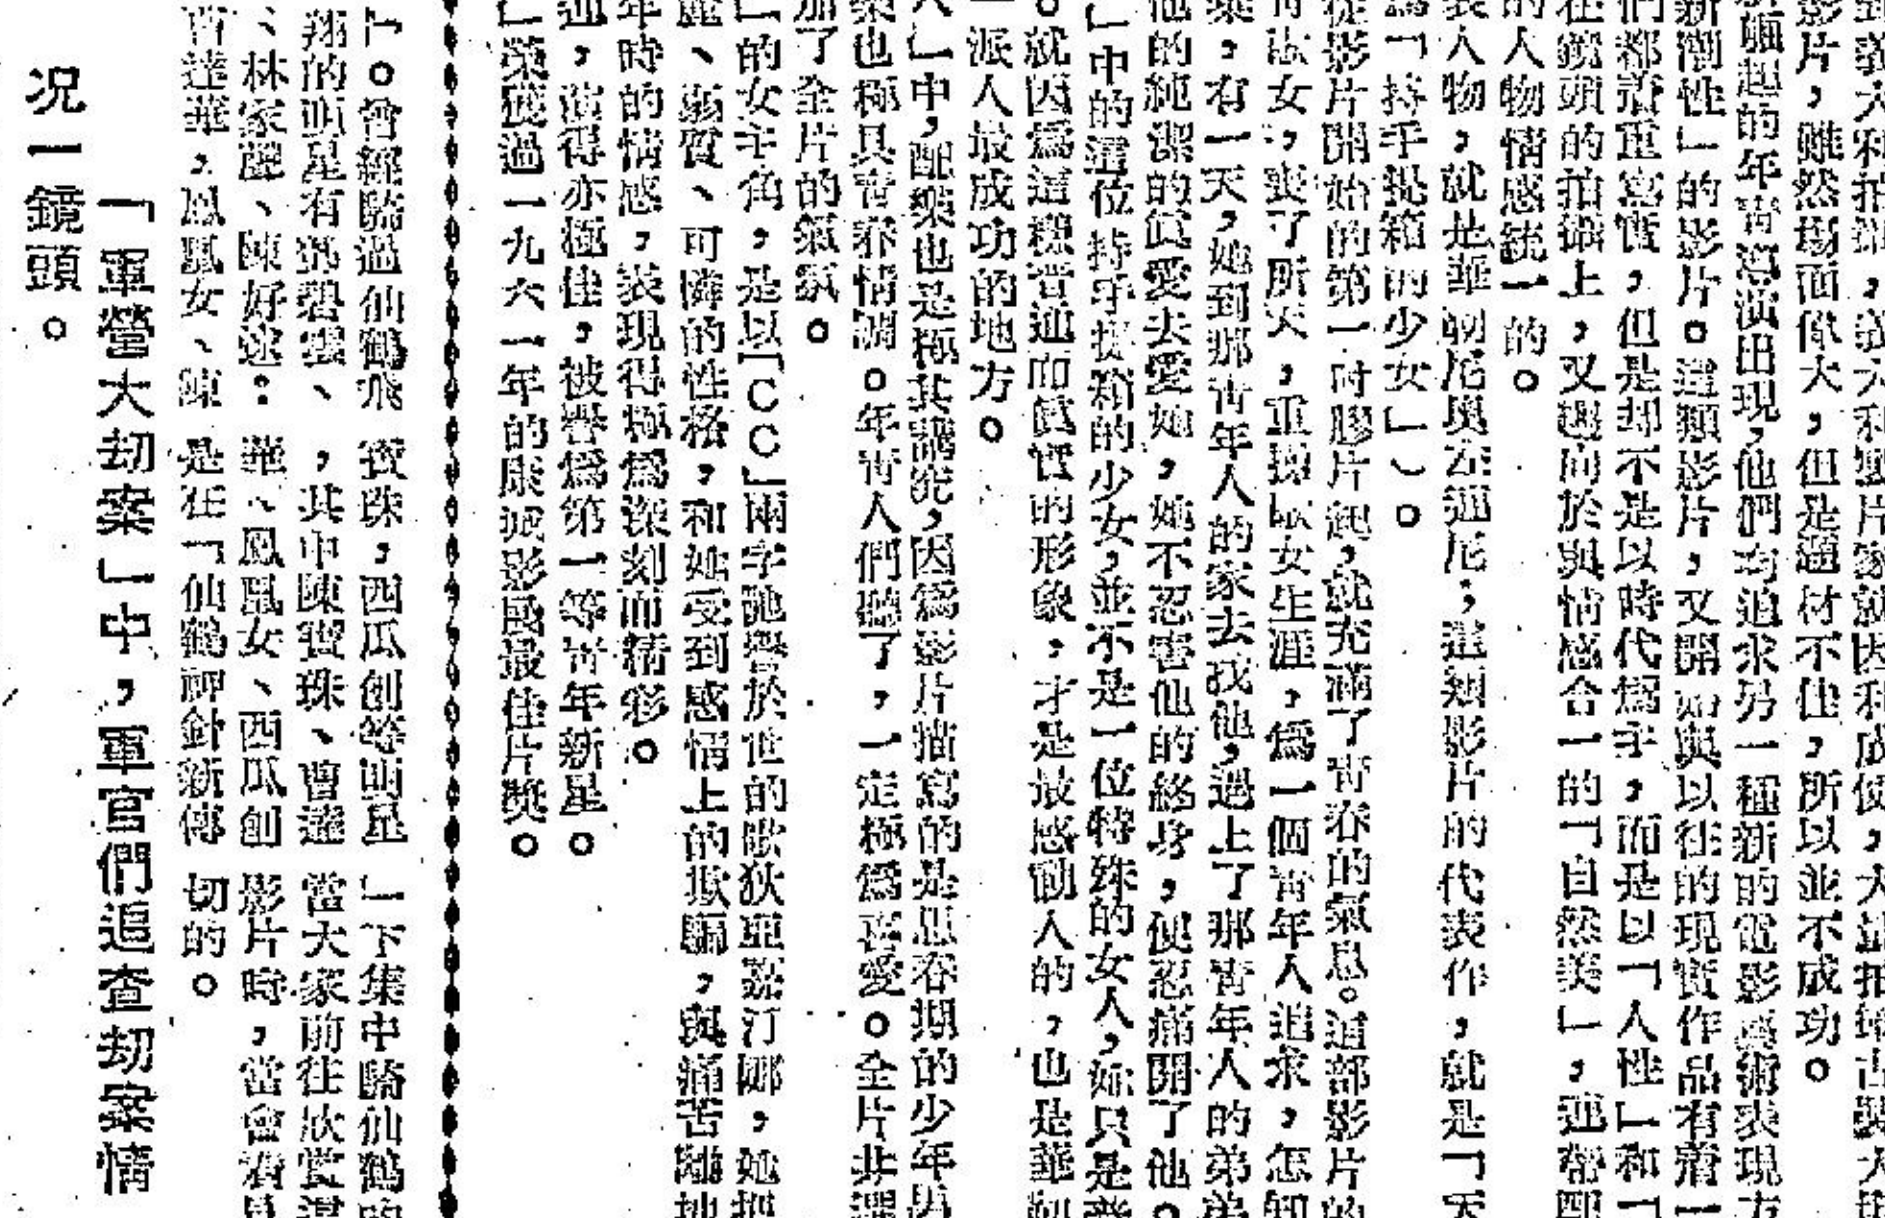 影片，雖然場面偉大，但是題材不佳，所以並不成功。
崛起的年青導演出現，他們均追求另一種新的電影藝術表現方
新潮性」的影片。這類影片，又開始與以往的現實作品有着一
們都着重寫實，但是却不是以時代爲主，而是以「人性」和「
在鏡頭的拍攝上，又趨向於與情感合一的「自然美」，連帶配
的人物情感統一的。
表人物，就是華朝尼與左運尼；這類影片的代表作，就是「天
爲「持手提箱的少女」）。
從影片開始的第一吋膠片起，就充滿了青春的氣息。這部影片的
歌女，喪了所夫，重操歌女生涯，爲一個青年人追求，怎知
棄，有一天，她到那青年人的家去找他，遇上了那青年人的弟弟
他的純潔的眞愛去愛她，她不忍害他的終身，便忍痛開了他。
」中的這位持手提箱的少女，並不是一位特殊的女人，她只是普
。就因爲這種普通而眞實的形象，才是最感動人的，也是華朝
一派人最成功的地方。
人」中，配樂也是極其講究，因爲影片描寫的是思春期的少年男
樂也極具青春情調。年青人們聽了，一定極爲喜愛。全片非選
加了全片的氣氛。
」的女主角，是以「ＣＣ」兩字馳譽於世的歌狄亞嘉汀娜，她把
、弱質、可憐的性格，和她受到感情上的欺騙，與痛苦離
年時的情感，表現得極爲深刻而精彩。
迎，演得亦極佳，被譽爲第一等青年新星。
」榮獲過一九六一年的康城影展最佳片獎。
」。曾經騎過仙鶴飛
翔的明星有鄧碧雲、
、林家麗、陳好逑：
曹達華，鳳凰女、陳
寶珠，西瓜刨等明星
，其中陳寶珠、曹達
華、鳳凰女、西瓜刨
是在「仙鶴神針新傳
」下集中騎仙鶴的
當大家前往欣賞這
影片時，當會看見
切的。
「軍營大劫案」中，軍官們追查劫案情
况一鏡頭。